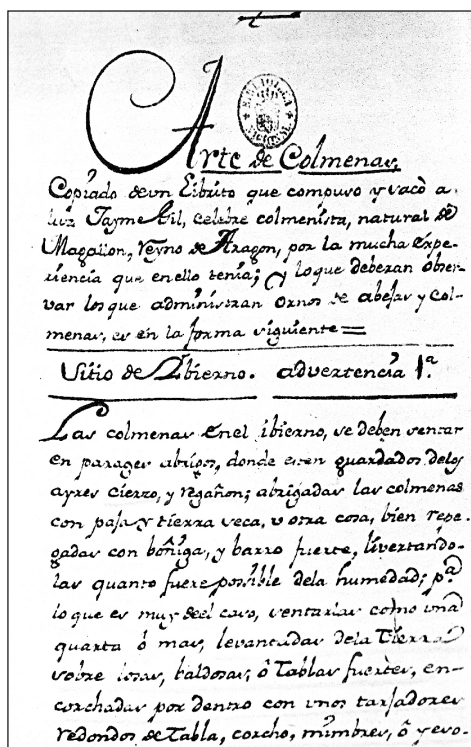 Arte de Colmenas,
Copiado de un Librito que compuso y sacò a
luz Jayme Gil, celebre colmenista, natural de
Magallon, reyno de Aragon, por la mucha expe-
riencia que en ello tenia; y lo que deberan obser-
var los que administran ornos de abejas y col-
menas, es en la forma siguiente=
Sitio de Ibierno. advertencia 1.ª
Las colmenas en el ibierno, se deben sentar
en parages abrigos, donde esten guardados de los
ayres cierzo, y regañon; abrigadas las colmenas
con paja y tierra seca, u otra cosa, bien repe-
gadas con bóñiga, y barro fuerte, livertando-
las quanto fuere posible de la humedad; p.ª
lo que es muy del caso, sentarlas como una
quarta ò mas, levantadas de la tierra
sobre losas, baldosas, ò tablas fuertes, en-
corchadas por dentro con unos tarjadores
redondos de tabla, corcho, mimbres, ò yeso.
BIBLIOTECA NACIONAL